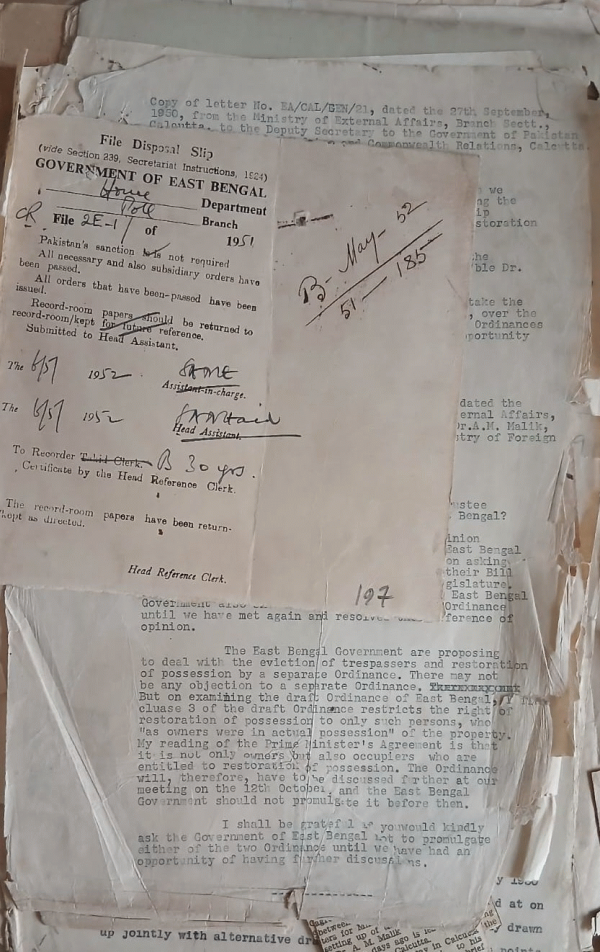 Copy of letter No. EA/CAL/GEN/21, dated the 27th September,
1950, from the Ministry of External Affairs, Branch Sectt.,
Calcutta, to the Deputy Secretary to the Government of Pakistan
and Commonwealth Relations, Calcutta.
File Disposal Slip
(vide Section 239, Secretariat Instructions, 1924)
GOVERNMENT OF EAST BENGAL
Home Department
Poll Branch
CR File 2E-1/ of 1951
Pakistan's sanction is not required
All necessary and also subsidiary orders have
been passed.
All orders that have been passed have been
issued.
Record-room papers should be returned to
record-room/kept for future reference.
Submitted to Head Assistant.
The 6/5/ 1952
Assistant-in-charge.
The 6/5/ 1952
Head Assistant.
To Recorder Tabid Clerk. B 30 yrs.
Certificate by the Head Reference Clerk.
The record-room papers have been return-
kept as directed.
Head Reference Clerk.
B- May- 52
51 - 185-
197
we
ng the
ip
storation
he
ble Dr.
take the
, over the
Ordinances
portunity
dated the
ernal Affairs,
r.A.M. Malik,
stry of Foreign
ustee
Bengal?
inion
East Bengal
on asking
their Bill
gislature.
East Bengal
Ordinance
Government
until we have met again and ference of
opinion.
The East Bengal Government are proposing
to deal with the eviction of trespassers and restoration
of possession by a separate Ordinance. There may not
be any objection to a separate Ordinance.
But on examining the draft Ordinance of East Bengal,
cluase 3 of the draft Ordinance restricts the right of
restoration of possession to only such persons, who
"as owners were in actual possession" of the property.
My reading of the Prime Minister's Agreement is that
it is not only owners but also occupiers who are
entitled to restoration of possession. The Ordinance
will, therefore, have to be discussed further at our
meeting on the 12th October, and the East Bengal
Government should not promulgate it before then.
I shall be grateful if you would kindly
ask the Government of East Bengal not to promulgate
either of the two Ordinance until we have had an
opportunity of having further discussions.
y 1950
d at on
drawn
up jointly with alternative dra
between
setting up of
A. M. Malik
days ago is
Calcutta.
in Calcutta
to his
brief
the